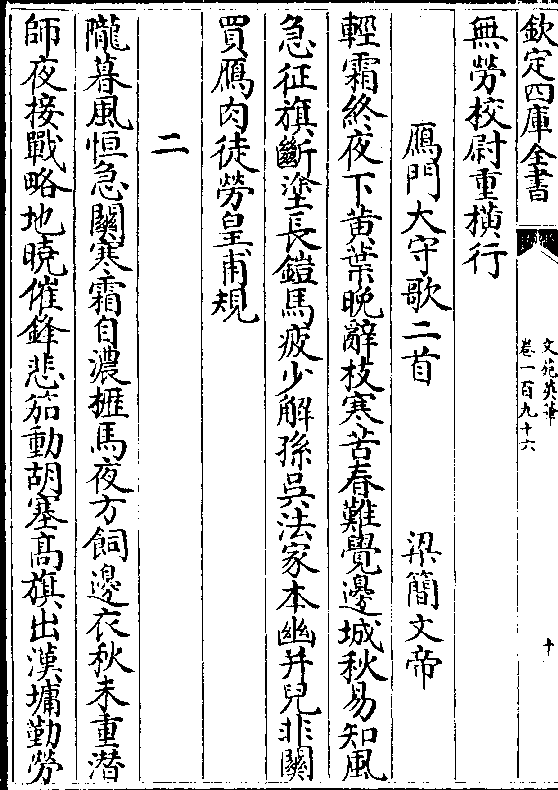 欽定四庫全書
文苑英華
卷一百九十六
十
無勞校尉重橫行
鴈門大守歌二首
梁簡文帝
輕霜終夜下黄葉晚辭枝寒苦春難覺邊城秋易知風
急征旗斷塗長鎧馬疲少解孫吳法家本幽并兒非關
買鴈肉徒勞皇甫規
二
隴暮風恒急關寒霜自濃櫪馬夜方飼邊衣秋未重潜
師夜接戰略地曉催鋒悲笳動胡塞髙旗出漢墉勤勞